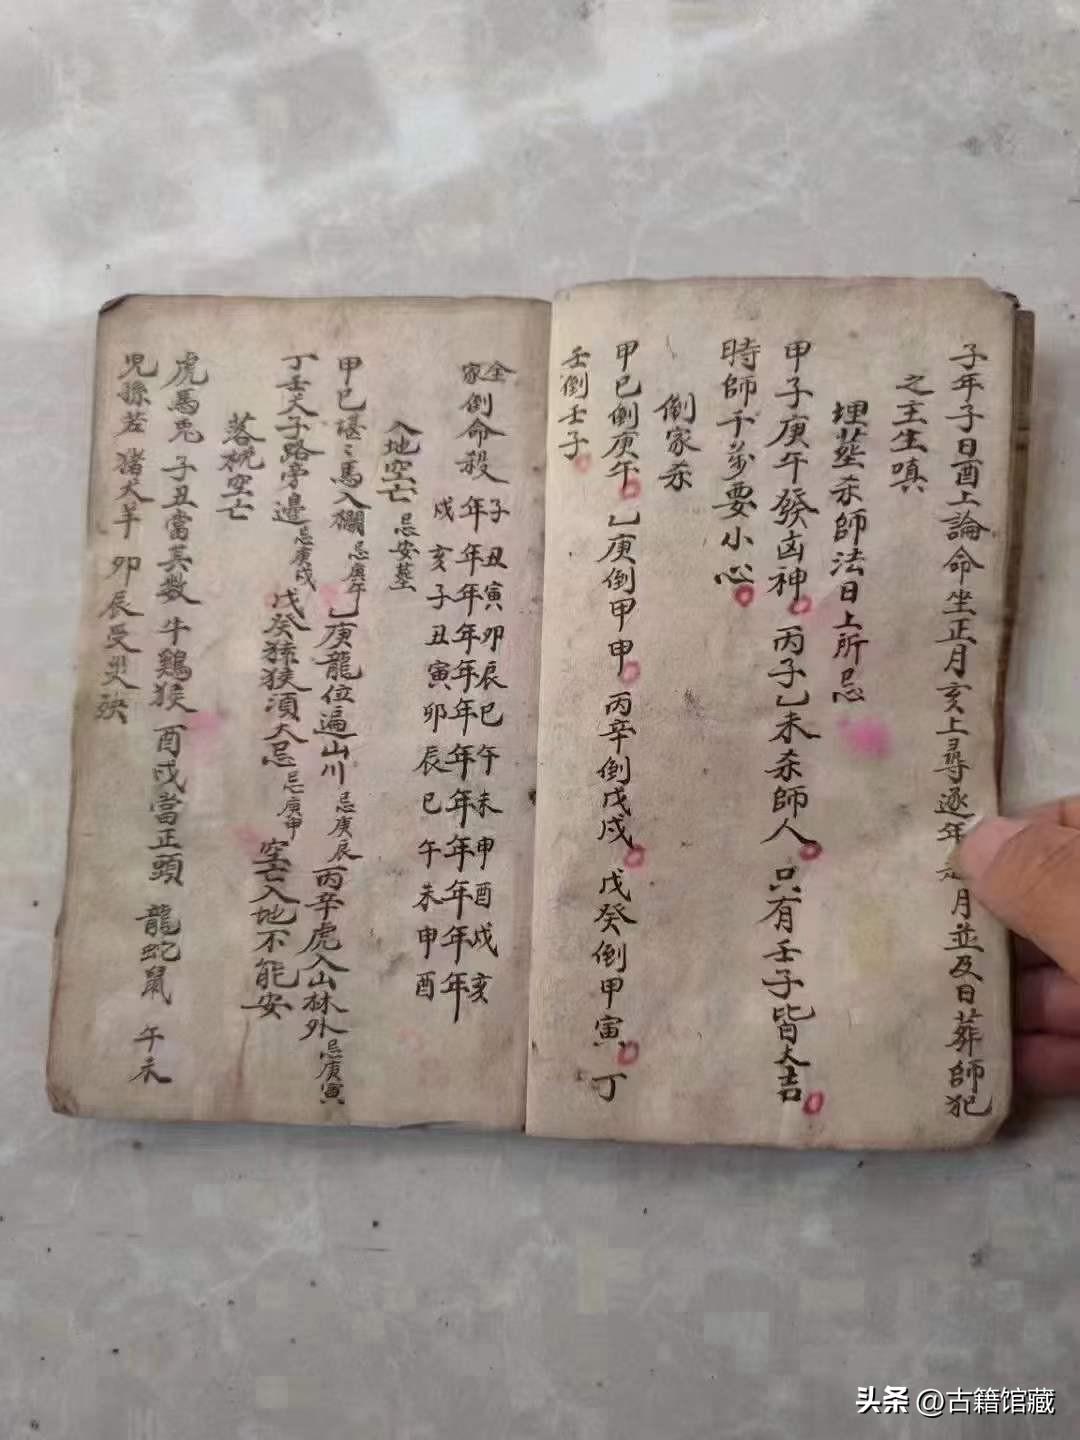 子年子日酉上論命坐正月亥上尋逐年月並及日葬師犯
之主生嗔
埋塟杀師法日上所忌
甲子庚午發凶神丙子乙未杀師人只有壬子皆大吉
時師千萬要小心
倒家杀
甲巳倒庚午乙庚倒甲申丙辛倒戊戌戊癸倒甲寅丁
壬倒壬子
全家倒命殺
子年丑年寅年卯年辰年巳年午年未年申年酉年戌年亥年
戍亥子丑寅卯辰巳午未申酉
入地空亡忌安塟
甲巳堪〻馬入欄忌庚午乙庚龍位遍山川忌庚辰丙辛虎入山林外忌庚寅
丁壬犬子路旁邊忌庚戍戊癸猿猴須大忌忌庚申空亡入地不能安
落枕空亡
虎馬兎子丑當其数牛鷄猴酉戍當正頭龍蛇鼠午未
児孫差猪犬羊卯辰受災殃
头条@古籍馆藏